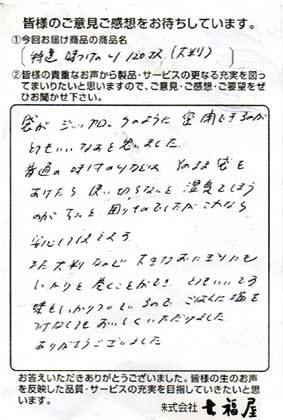 皆様のご意見ご感想をお待ちしています。
①今回お届け商品の商品名
特選 味つけのり 120枚(大判)
②皆様の貴重なお声から製品・サービスの更なる充実を図っ
てまいりたいと思いますので、ご意見・ご感想・ご要望をぜ
ひお聞かせ下さい。
袋がジップロックのように密閉できるのが
とてもいいなぁと思いました。
普通の味付けのりなどは そのまま袋を
あけたら 使い切らないと 湿気てしまう
のが ちょっと 困りものでしたが これなら
安心して使えます
また大判なので 大きなおにぎりでも
しっかりと巻くことができ とてもいいです
味もしっかりついているので ごはんに塩を
つけなくても おいしくいただけました
ありがとうございました
お答えいただきありがとうございました。皆様の生のお声
を反映した品質・サービスの充実を目指していきたいと思
います。
株式会社 七福屋